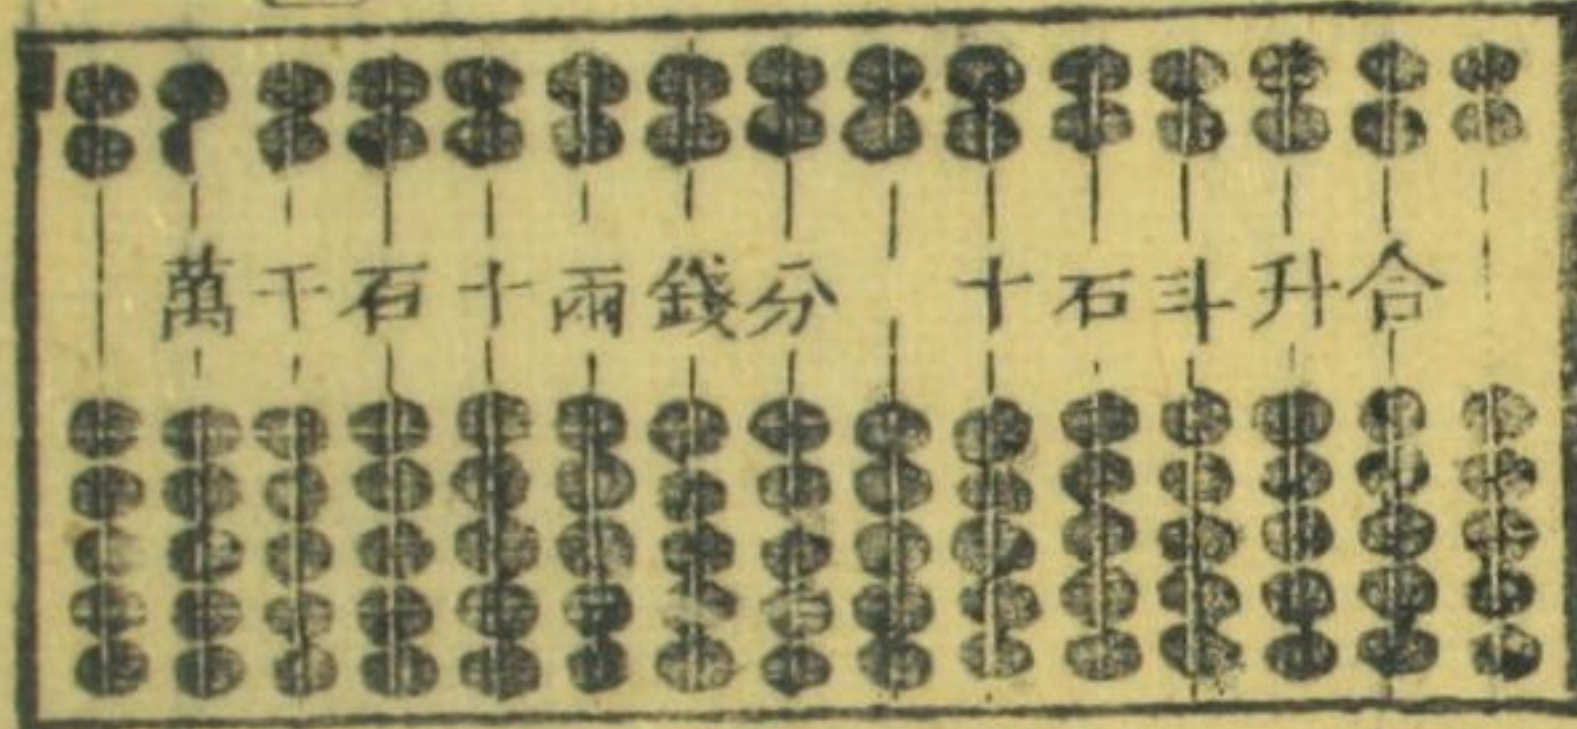 萬千石十兩錢分 十石斗升合